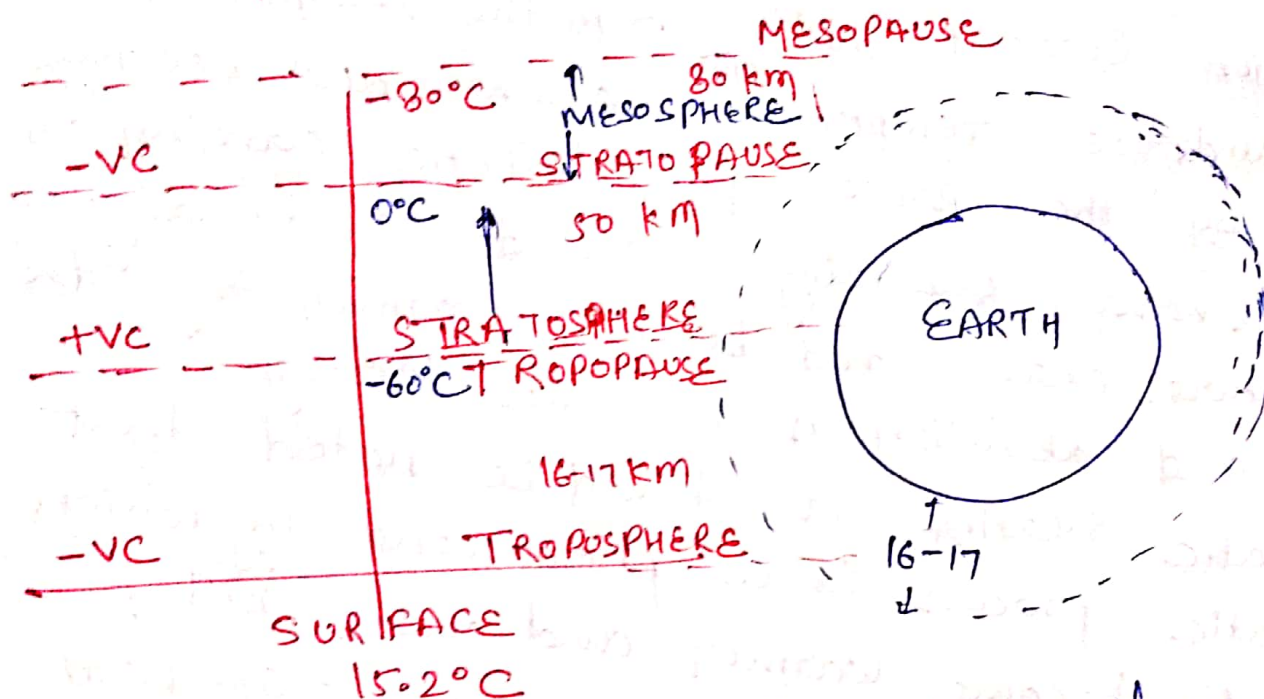 MESOPAUSE
-80°C 80 km
MESOSPHERE
-VC STRATOPAUSE
0°C 50 km
EARTH
+VC STRATOSPHERE
-60°C TROPOPAUSE
16-17 km
-VC TROPOSPHERE 16-17
SURFACE
15.2°C